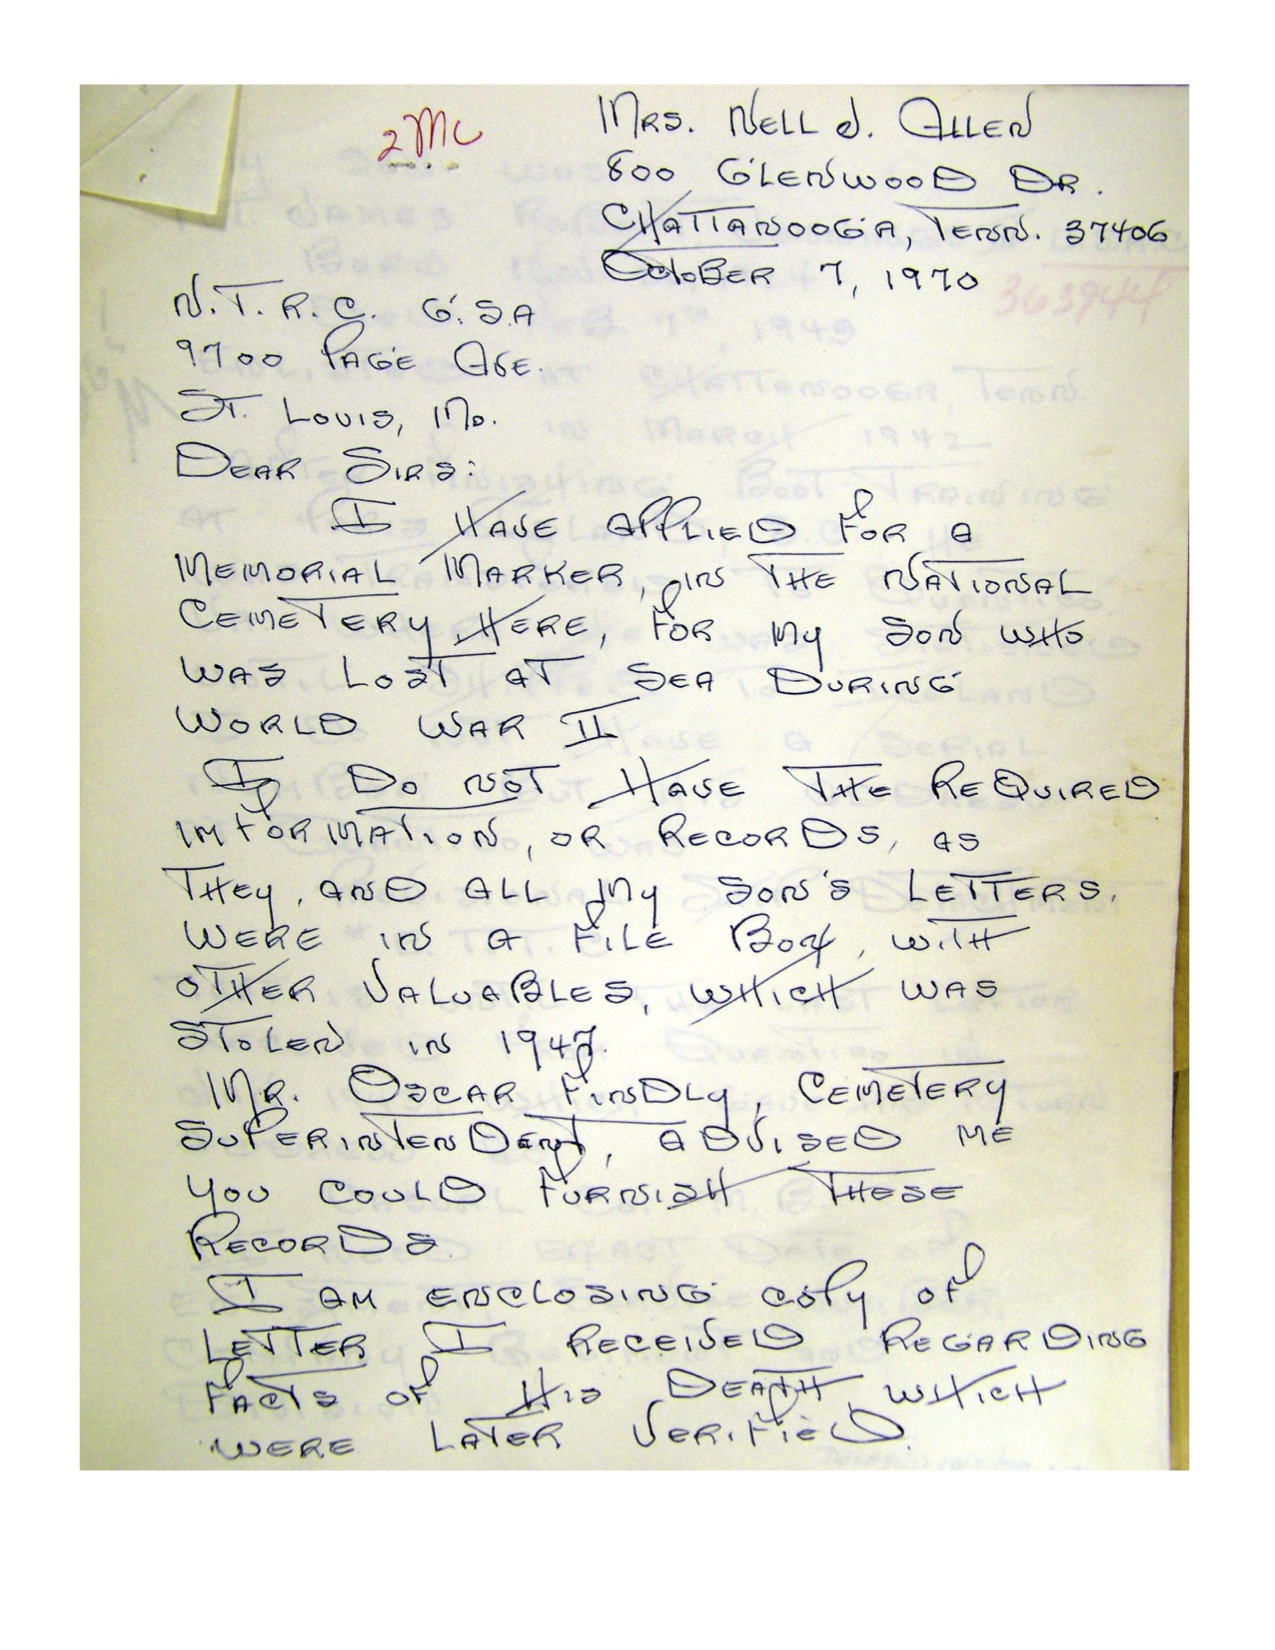 2MC
Mrs. Nell J. Allen
800 Glenwood Dr.
Chattanooga, Tenn. 37406
October 7, 1970
363944
N.T.R.C. G.S.A
9700 Page Ave.
St. Louis, Mo.
Dear Sirs:
I have applied for a
memorial marker, in the National
Cemetery here, for my son who
was lost at sea during
World War II
I do not have the required
imformation, or records, as
they, and all my son's letters,
were in a file box, with
other valuables, which was
stolen in 1947.
Mr. Oscar Findly, Cemetery
Superintendent, advised me
you could furnish these
records.
I am enclosing copy of
letter I received regarding
facts of his death, which
were later verified.